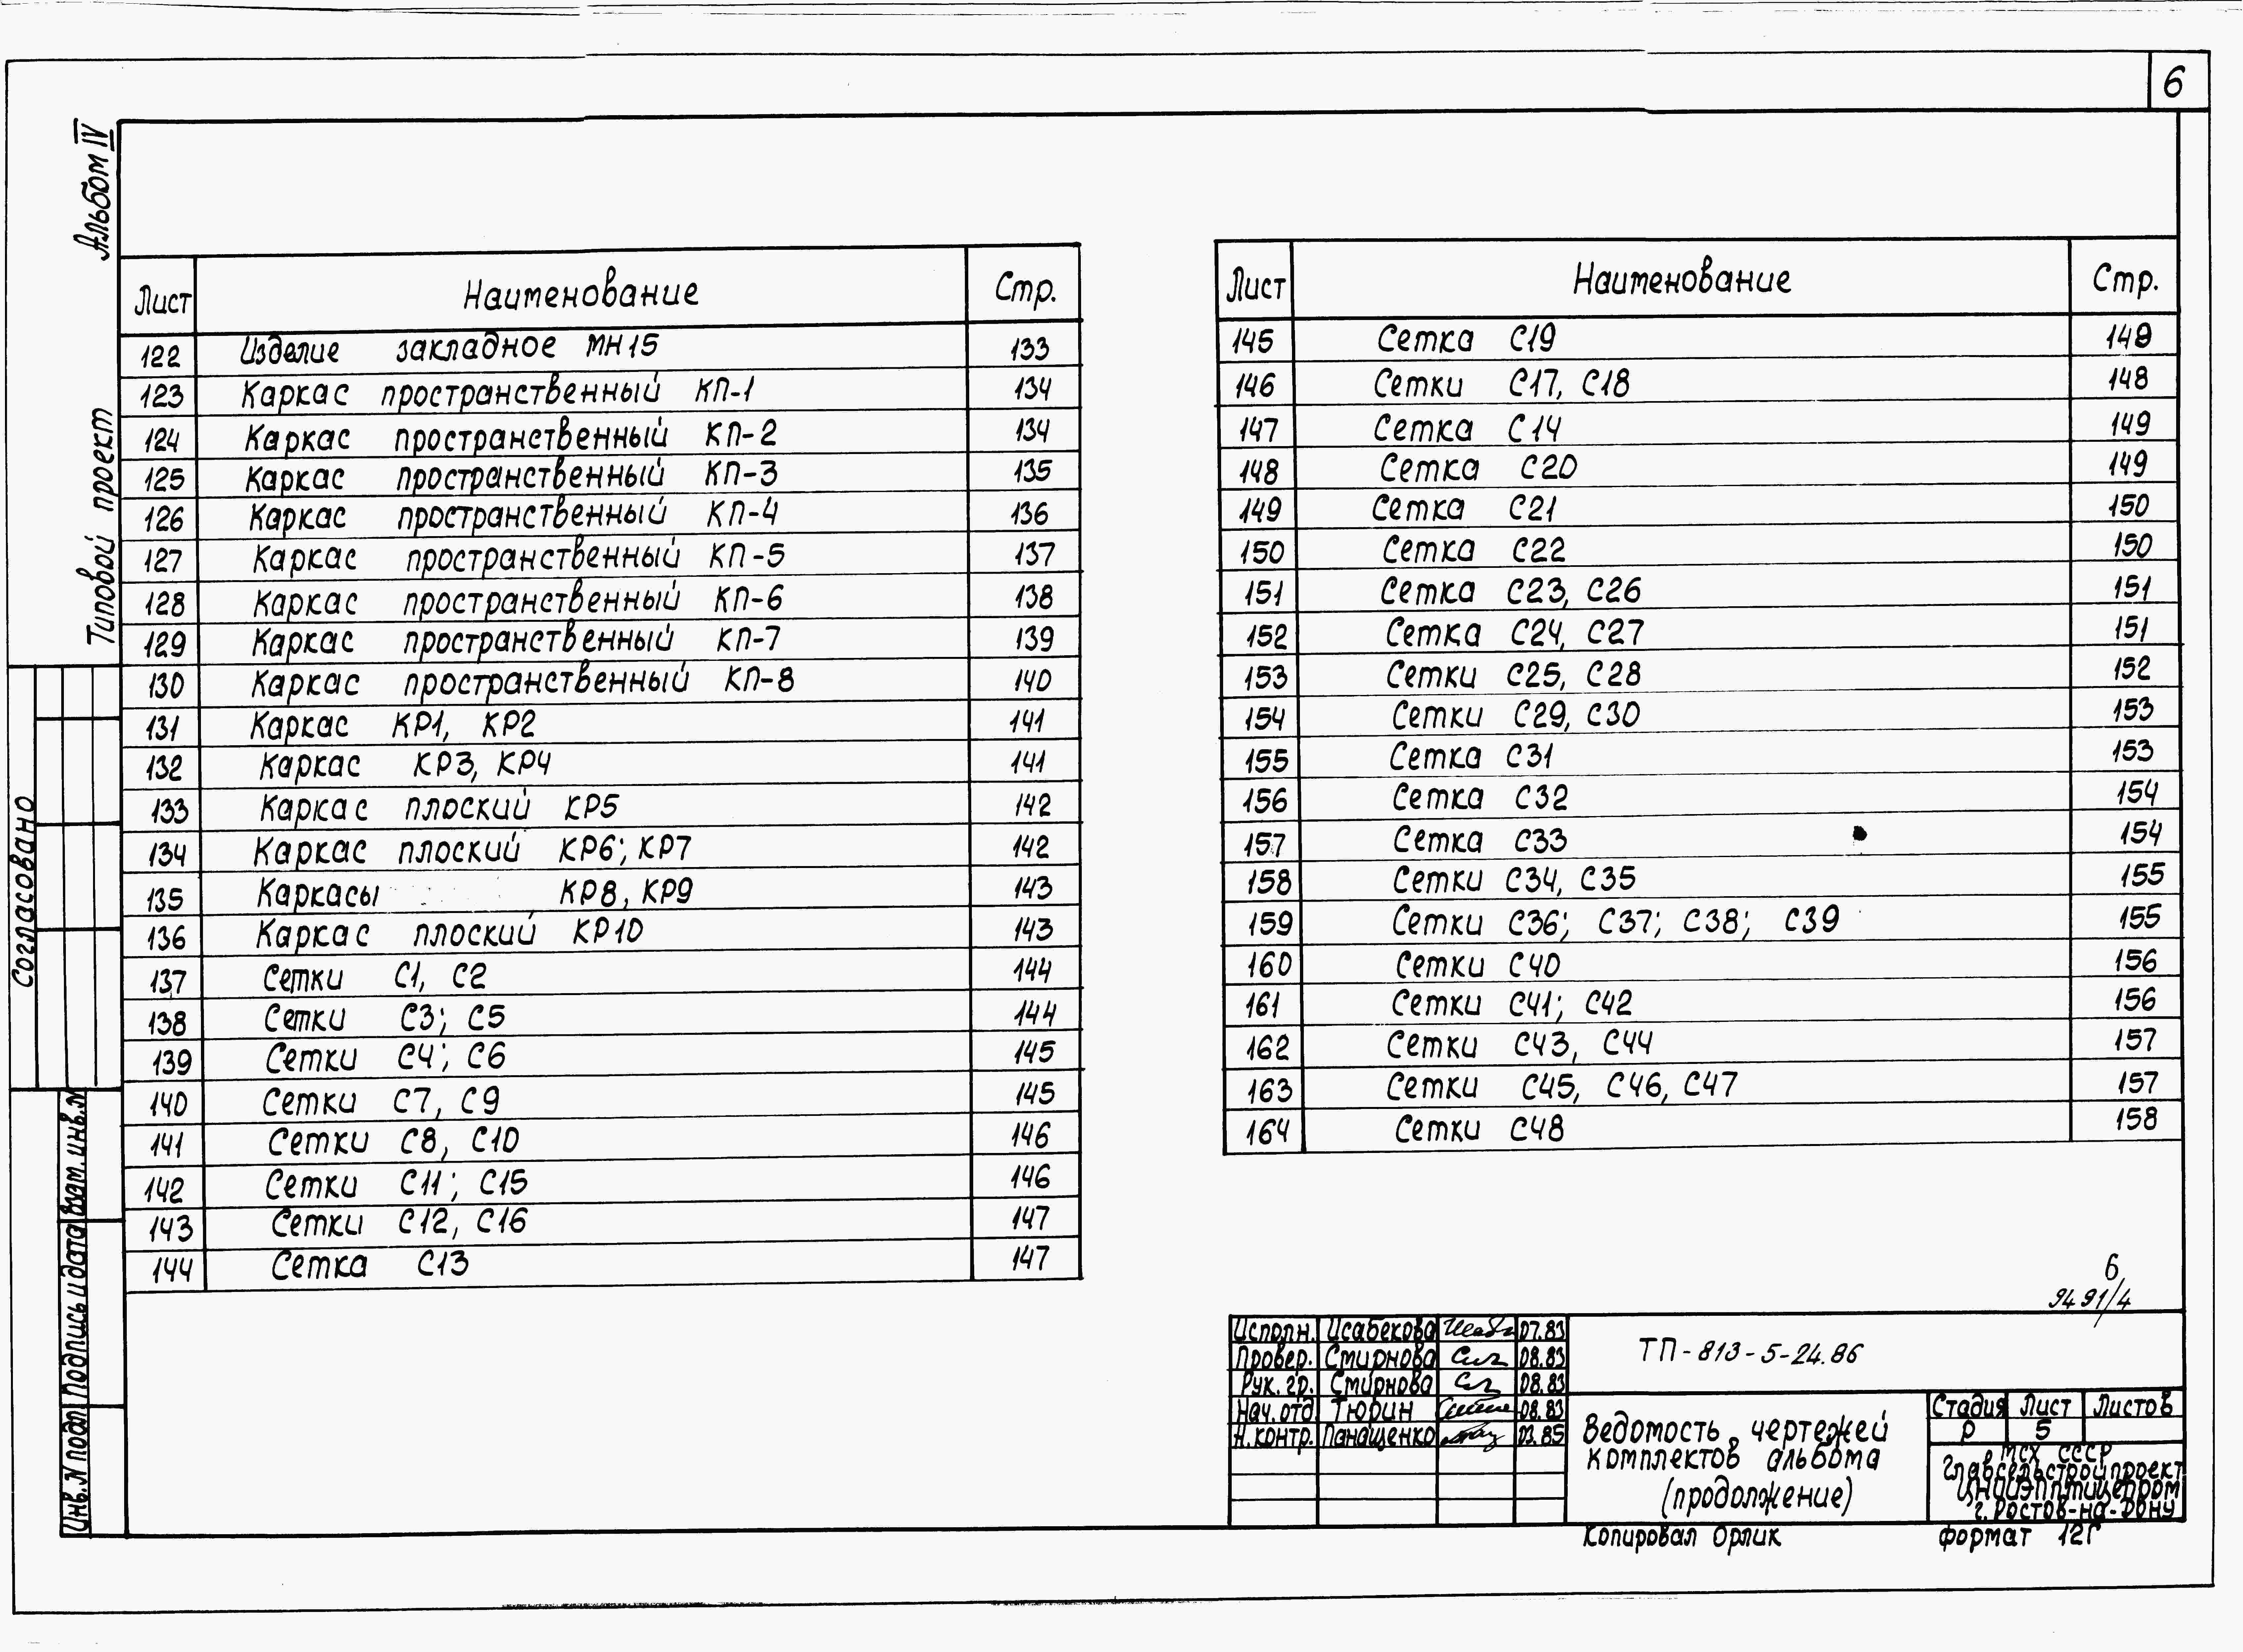 6
Альбом IV
Типовой проект
Согласовано
Взам. инв. N
Подпись и дата
Инв. N подл.
Лист Наименование Стр.
122 Изделие закладное МН15 133
123 Каркас пространственный КП-1 134
124 Каркас пространственный КП-2 134
125 Каркас пространственный КП-3 135
126 Каркас пространственный КП-4 136
127 Каркас пространственный КП-5 137
128 Каркас пространственный КП-6 138
129 Каркас пространственный КП-7 139
130 Каркас пространственный КП-8 140
131 Каркас КР1, КР2 141
132 Каркас КР3, КР4 141
133 Каркас плоский КР5 142
134 Каркас плоский КР6; КР7 142
135 Каркасы КР8, КР9 143
136 Каркас плоский КР10 143
137 Сетки С1, С2 144
138 Сетки С3; С5 144
139 Сетки С4; С6 145
140 Сетки С7, С9 145
141 Сетки С8, С10 146
142 Сетки С11; С15 146
143 Сетки С12, С16 147
144 Сетка С13 147
Лист Наименование Стр.
145 Сетка С19
146 Сетки С17, С18 148
147 Сетка С14 149
148 Сетка С20 149
149 Сетка С21 150
150 Сетка С22 150
151 Сетка С23, С26 151
152 Сетка С24, С27 151
153 Сетки С25, С28 152
154 Сетки С29, С30 153
155 Сетка С31 153
156 Сетка С32 154
157 Сетка С33 154
158 Сетки С34, С35 155
159 Сетки С36; С37; С38; С39 155
160 Сетки С40 156
161 Сетки С41; С42 156
162 Сетки С43, С44 157
163 Сетки С45, С46, С47 157
164 Сетки С48 158
6
9491/4
Исполн. Исабекова 07.83
Провер. Смирнова 08.83
Рук. гр. Смирнова 08.83
Нач. отд Тюрин 08.83
Н. контр. Панащенко 03.85
ТП-813-5-24.86
Ведомость чертежей
комплектов альбома
(продолжение)
Стадия Лист Листов
Р 5
МСХ СССР
Главсельстройпроект
ЦНИИЭПптицепром
г. Ростов-на-Дону
Копировал Орлик Формат 12Г